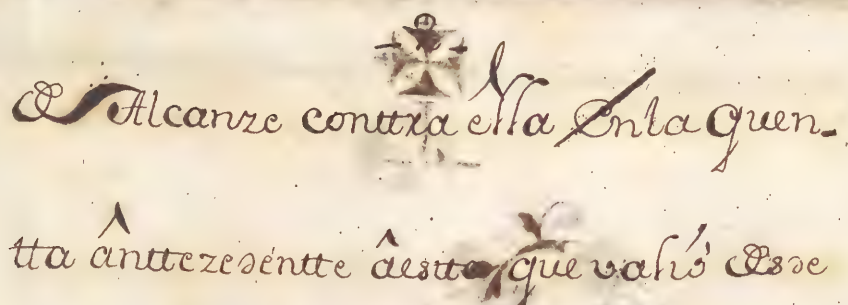 Es Alcanze conttra ella En la quen-
tta anttezedentte âestta, que valió Esde